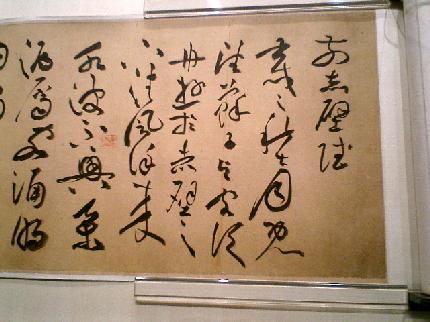 前赤壁賦
壬戌之秋七月既
望蘇子與客泛
舟遊於赤壁之
下清風徐來
水波不興舉
酒屬客誦明